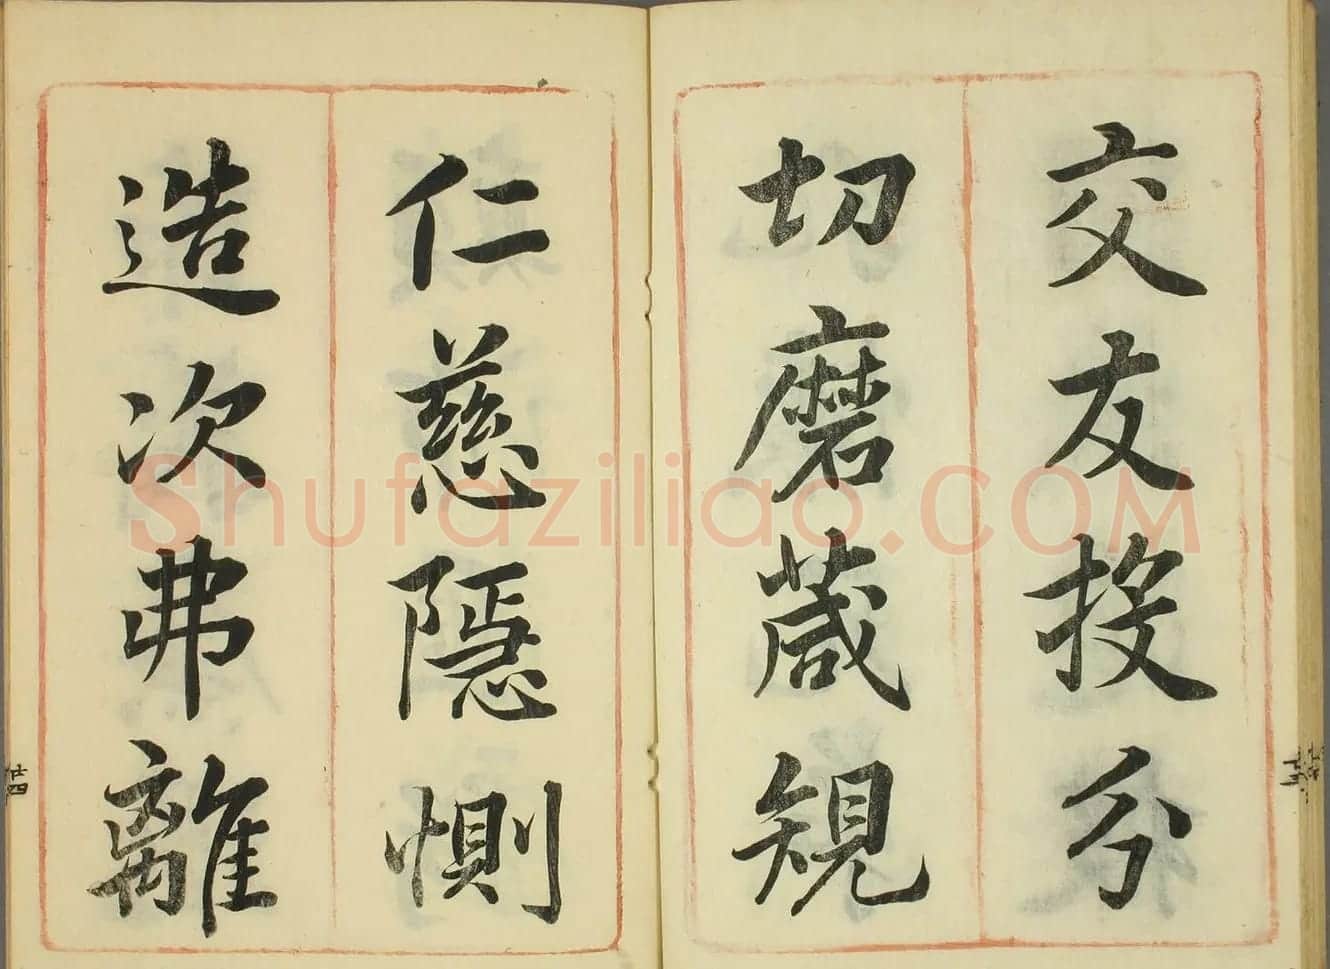 交友投分
切磨箴規
仁慈隱惻
造次弗離
廿四
Shufaziliao.COM